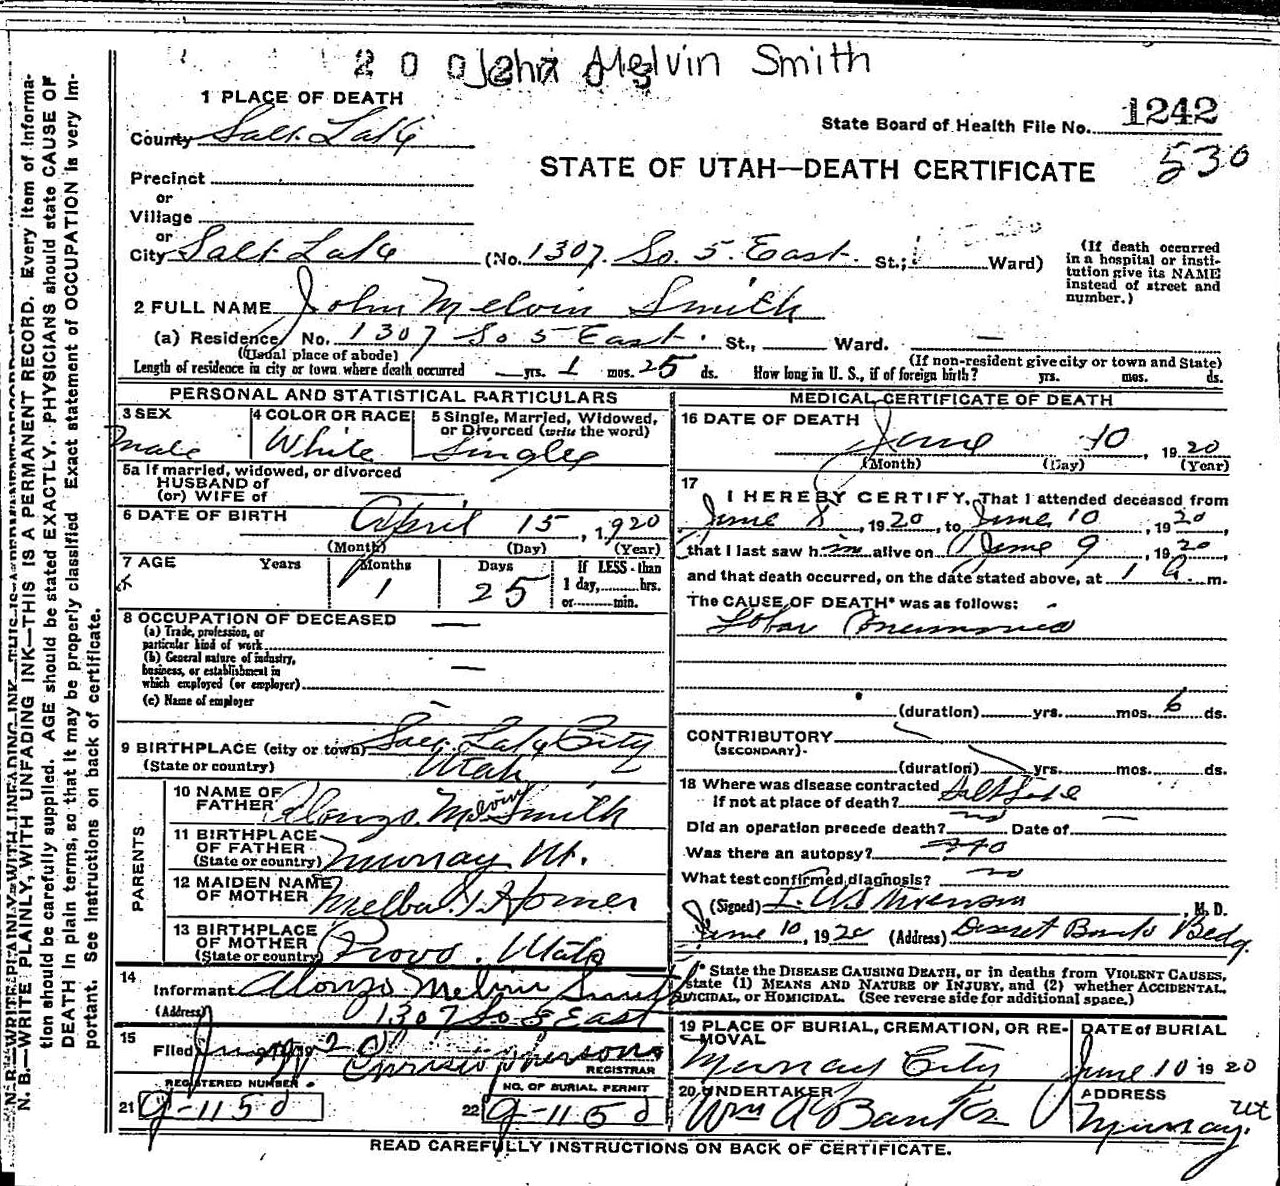 John Melvin Smith
1 PLACE OF DEATH
County Salt Lake
State Board of Health File No. 1242
530
STATE OF UTAH—DEATH CERTIFICATE
Precinct
or
Village
or
City Salt Lake (No. 1307 So. 5 East. St.; Ward)
(If death occurred in a hospital or insti-
tution give its NAME
instead of street and
number.)
2 FULL NAME John Melvin Smith
(a) Residence No. 1307 So 5 East. St., Ward. —
(Usual place of abode) (If non-resident give city or town and State)
Length of residence in city or town where death occurred — yrs. 1 mos. 25 ds. How long in U. S., if of foreign birth? yrs. mos. ds.
PERSONAL AND STATISTICAL PARTICULARS
3 SEX Male
4 COLOR OR RACE White
5 Single, Married, Widowed,
or Divorced (write the word)
Single
5a If married, widowed, or divorced
HUSBAND of
(or) WIFE of
6 DATE OF BIRTH April 15, 1920
(Month) (Day) (Year)
7 AGE Years Months Days If LESS than
1 day, hrs.
or min.
1 25
8 OCCUPATION OF DECEASED —
(a) Trade, profession, or
particular kind of work
(b) General nature of industry,
business, or establishment in
which employed (or employer) —
(c) Name of employer —
9 BIRTHPLACE (city or town) Salt Lake City
(State or country) Utah
PARENTS
10 NAME OF
FATHER Alonzo Melving Smith
11 BIRTHPLACE
OF FATHER
(State or country) Murray Ut.
12 MAIDEN NAME
OF MOTHER Melba Horner
13 BIRTHPLACE
OF MOTHER
(State or country) Provo. Utah
14
Informant Alonzo Melvin Smith
(Address) 1307 So 5 East
15
Filed
REGISTRAR
REGISTERED NUMBER NO. OF BURIAL PERMIT
21 g-1150 22 g-1150
MEDICAL CERTIFICATE OF DEATH
16 DATE OF DEATH
June 10, 1920
(Month) (Day) (Year)
17
I HEREBY CERTIFY, That I attended deceased from
June 8, 1920, to June 10, 1920,
that I last saw him alive on June 9, 1920,
and that death occurred, on the date stated above, at 1 a. m.
The CAUSE OF DEATH* was as follows:
Lobar Pneumonia
(duration) yrs. mos. 6 ds.
CONTRIBUTORY
(SECONDARY)
(duration) yrs. mos. ds.
18 Where was disease contracted
if not at place of death? Salt Lake
Did an operation precede death? no Date of —
Was there an autopsy? no
What test confirmed diagnosis? no
(Signed) M. D.
June 10, 1920 (Address) Deseret Bank Bldg.
* State the DISEASE CAUSING DEATH, or in deaths from VIOLENT CAUSES,
state (1) MEANS AND NATURE OF INJURY, and (2) whether ACCIDENTAL,
SUICIDAL, or HOMICIDAL. (See reverse side for additional space.)
19 PLACE OF BURIAL, CREMATION, OR RE-
MOVAL
Murray City
DATE of BURIAL
June 10 1920
20 UNDERTAKER
Wm A Banks
ADDRESS
Murray. Ut
READ CAREFULLY INSTRUCTIONS ON BACK OF CERTIFICATE.
N. B.—WRITE PLAINLY, WITH UNFADING INK—THIS IS A PERMANENT RECORD. Every item of informa-
tion should be carefully supplied. AGE should be stated EXACTLY. PHYSICIANS should state CAUSE OF
DEATH in plain terms, so that it may be properly classified Exact statement of OCCUPATION is very im-
portant. See instructions on back of certificate.